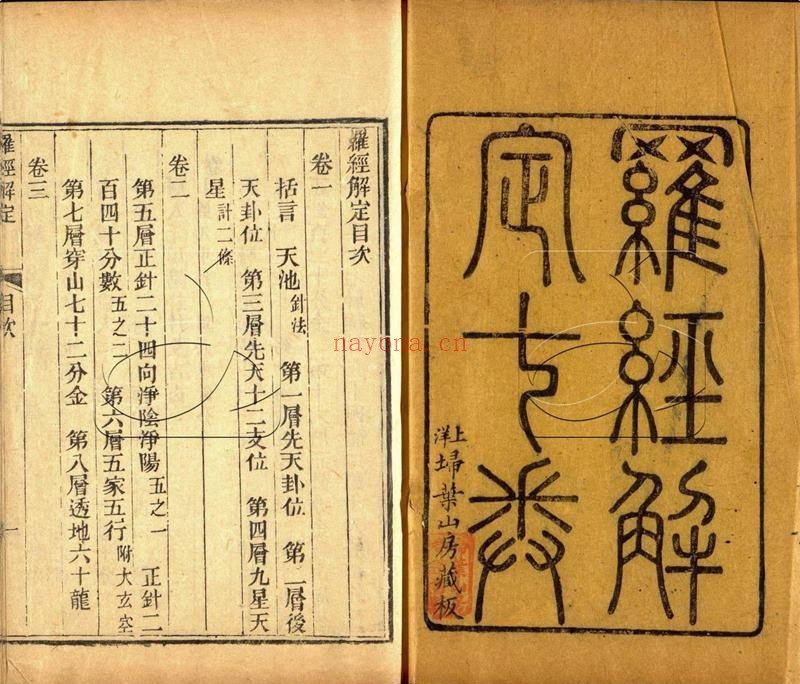 羅經解
定七卷
上洋埽葉山房藏板
羅經解定目次
卷一
括言 天池針法 第一層先天卦位 第二層後
天卦位 第三層先天十二支位 第四層九星天
星計二條
卷二
第五層正針二十四向淨陰淨陽五之一 正針二
百四十分數五之二 第六層五家五行附大玄空
第七層穿山七十二分金 第八層透地六十龍
卷三
羅經解定 目次 一
nayona.cn